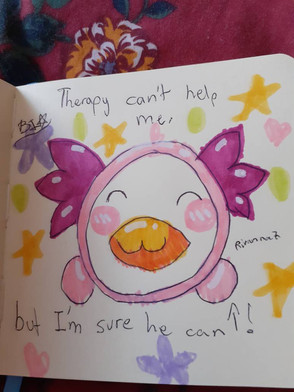 Therapy can't help
me,
but I'm sure he can↑!